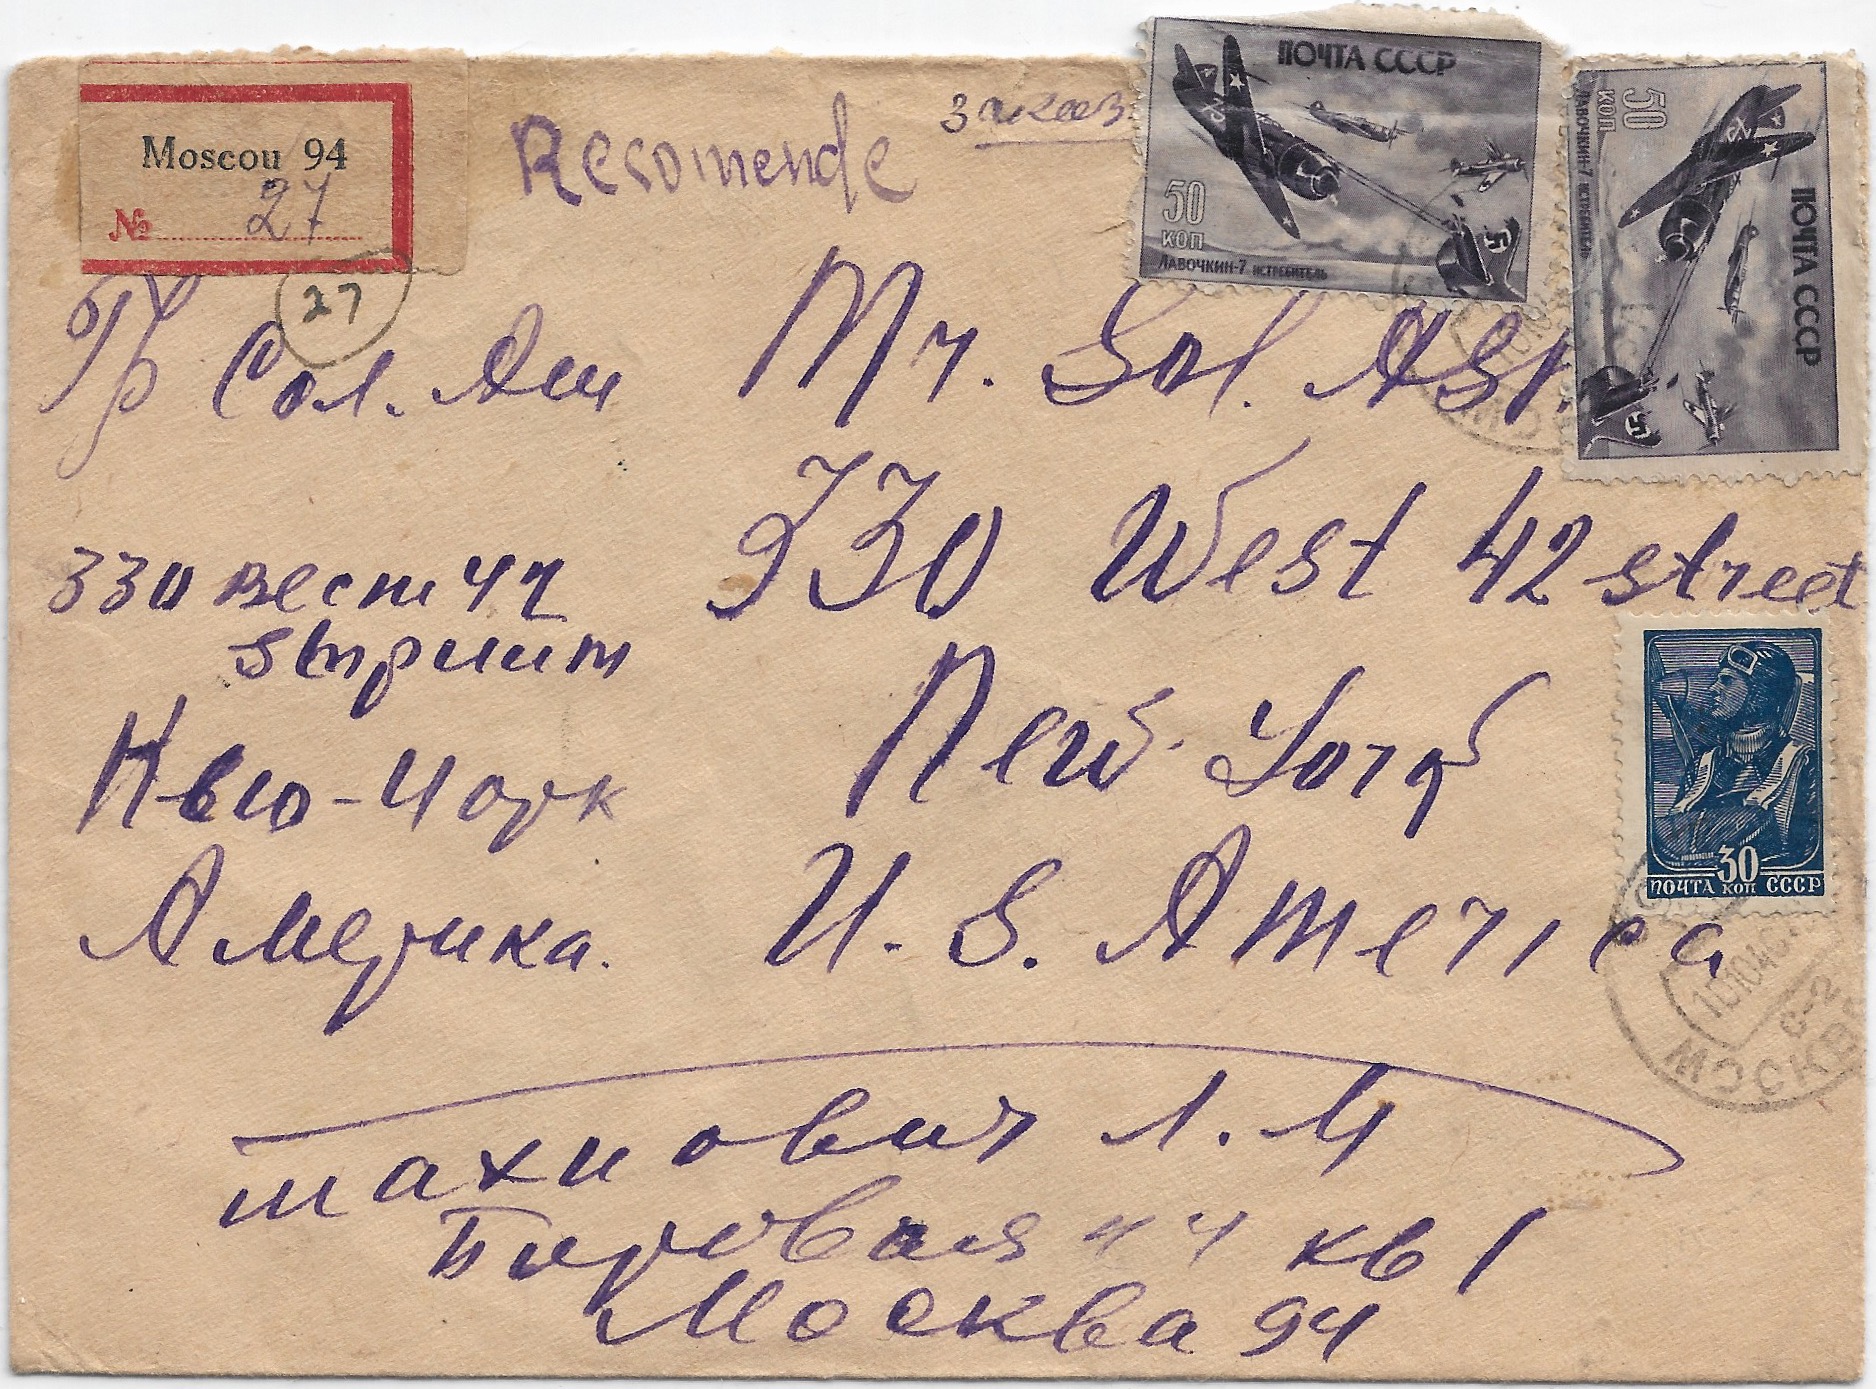 Moscou 94
№ 27
27
Recomende
заказ
ПОЧТА СССР
50
КОП
ЛАВОЧКИН-7 ИСТРЕБИТЕЛЬ
50
КОП
ЛАВОЧКИН-7 ИСТРЕБИТЕЛЬ
ПОЧТА СССР
Гр Сол. Аш
330 вест 42
стриит
Нью-Йорк
Америка.
Mr. Sol. ASh.
330 West 42 street
New York
U. S. America
30
ПОЧТА КОП СССР
МОСКВА
Тахнович Л. М
Боровая 44 кв 1
Москва 94